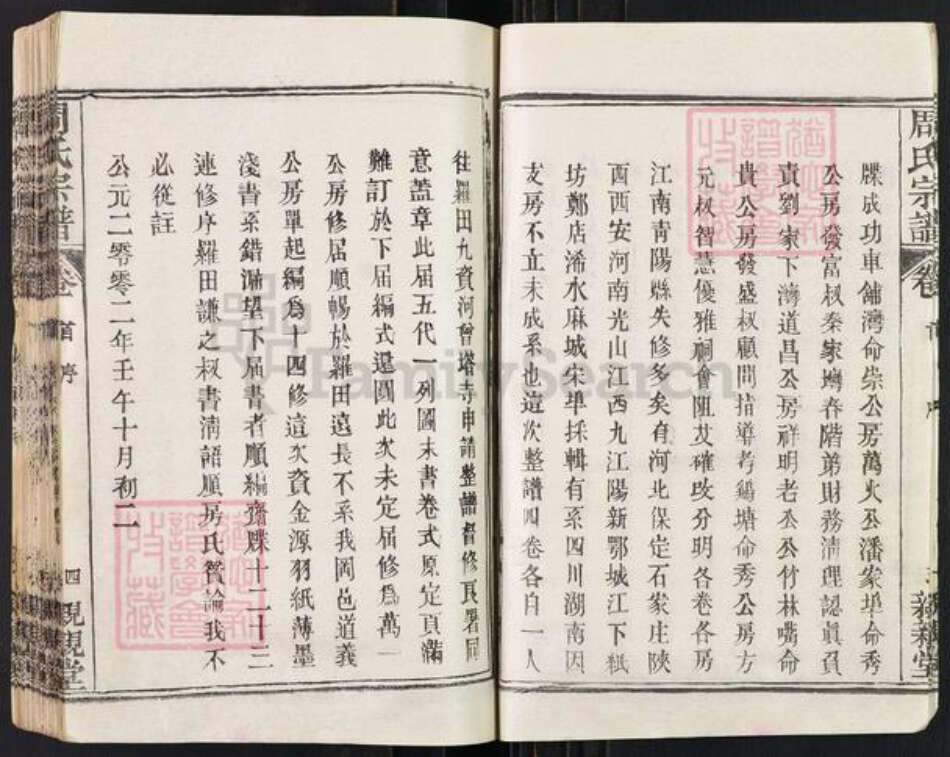 牒成功車舖灣命崇公房萬火公潘家埠命秀
公房發富叔秦家塆春階弟財務清理認眞負
責劉家下灣道昌公房祥明老公公竹林嘴命
貴公房發盛叔顧問指導考鷄塘命秀公房方
元叔智慧優雅祠會阻艾確改分明各卷各房
江南青陽縣失修多矣有河北保定石家庄陝
西西安河南光山江西九江陽新鄂城江下紙
坊鄭店浠水麻城宋埠採輯有系四川湖南因
支房不立未成系也這次整譜四卷各自一人
往羅田九資河曾塔寺申請整譜督修良署同
意蓋章此届五代一列圖末書卷式原定頁滿
難訂於下届編式還圓此次未定届修爲萬一
公房修届順暢於羅田遠長不系我岡邑道義
公房單起編爲十四修這次資金源羽紙薄墨
淺書系錯漏望下届書者順編齋牒十二十三
連修序羅田謙之叔書淸語順房氏贊論我不
必從註
公元二零零二年壬午十月初二
周氏宗譜
卷首
序
四
親親堂
周氏宗譜
卷首
序
親親堂
FamilySearch
譜學會
收藏
譜學會
收藏